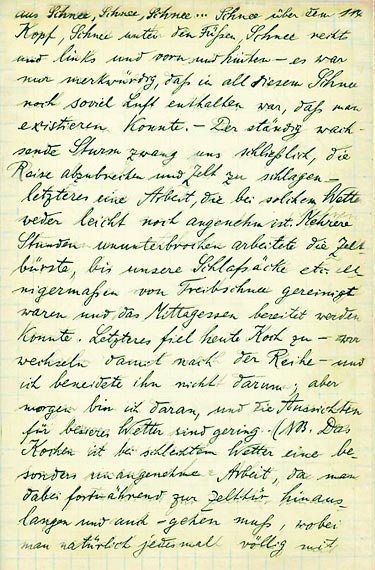 aus Schnee, Schnee, Schnee... Schnee über dem
Kopf, Schnee unter den Füßen, Schnee rechts
und links und vorn und hinten – es war
nur merkwürdig, daß in all diesem Schnee
noch soviel Luft enthalten war, daß man
existieren konnte. – Der ständig wach-
sende Sturm zwang uns schließlich, die
Reise abzubrechen und Zelt zu schlagen –
letzteres eine Arbeit, die bei solchem Wetter
weder leicht noch angenehm ist. Mehrere
Stunden ununterbrochen arbeitete die Zelt-
bürste, bis unsere Schlafsäcke etc. ei-
nigermaßen von Treibschnee gereinigt
waren und das Mittagessen bereitet werden
konnte. Letzteres fiel heute Koch zu – wir
wechseln damit nach der Reihe – und
ich beneidete ihn nicht darum; aber
morgen bin ich daran, und die Aussichten
für besseres Wetter sind gering. (NB. Das
Kochen ist bei schlechtem Wetter eine be-
sonders unangenehme Arbeit, da man
dabei fortwährend zur Zelttür hinaus-
langen und auch – gehen muß, wobei
man natürlich jedesmal völlig mit